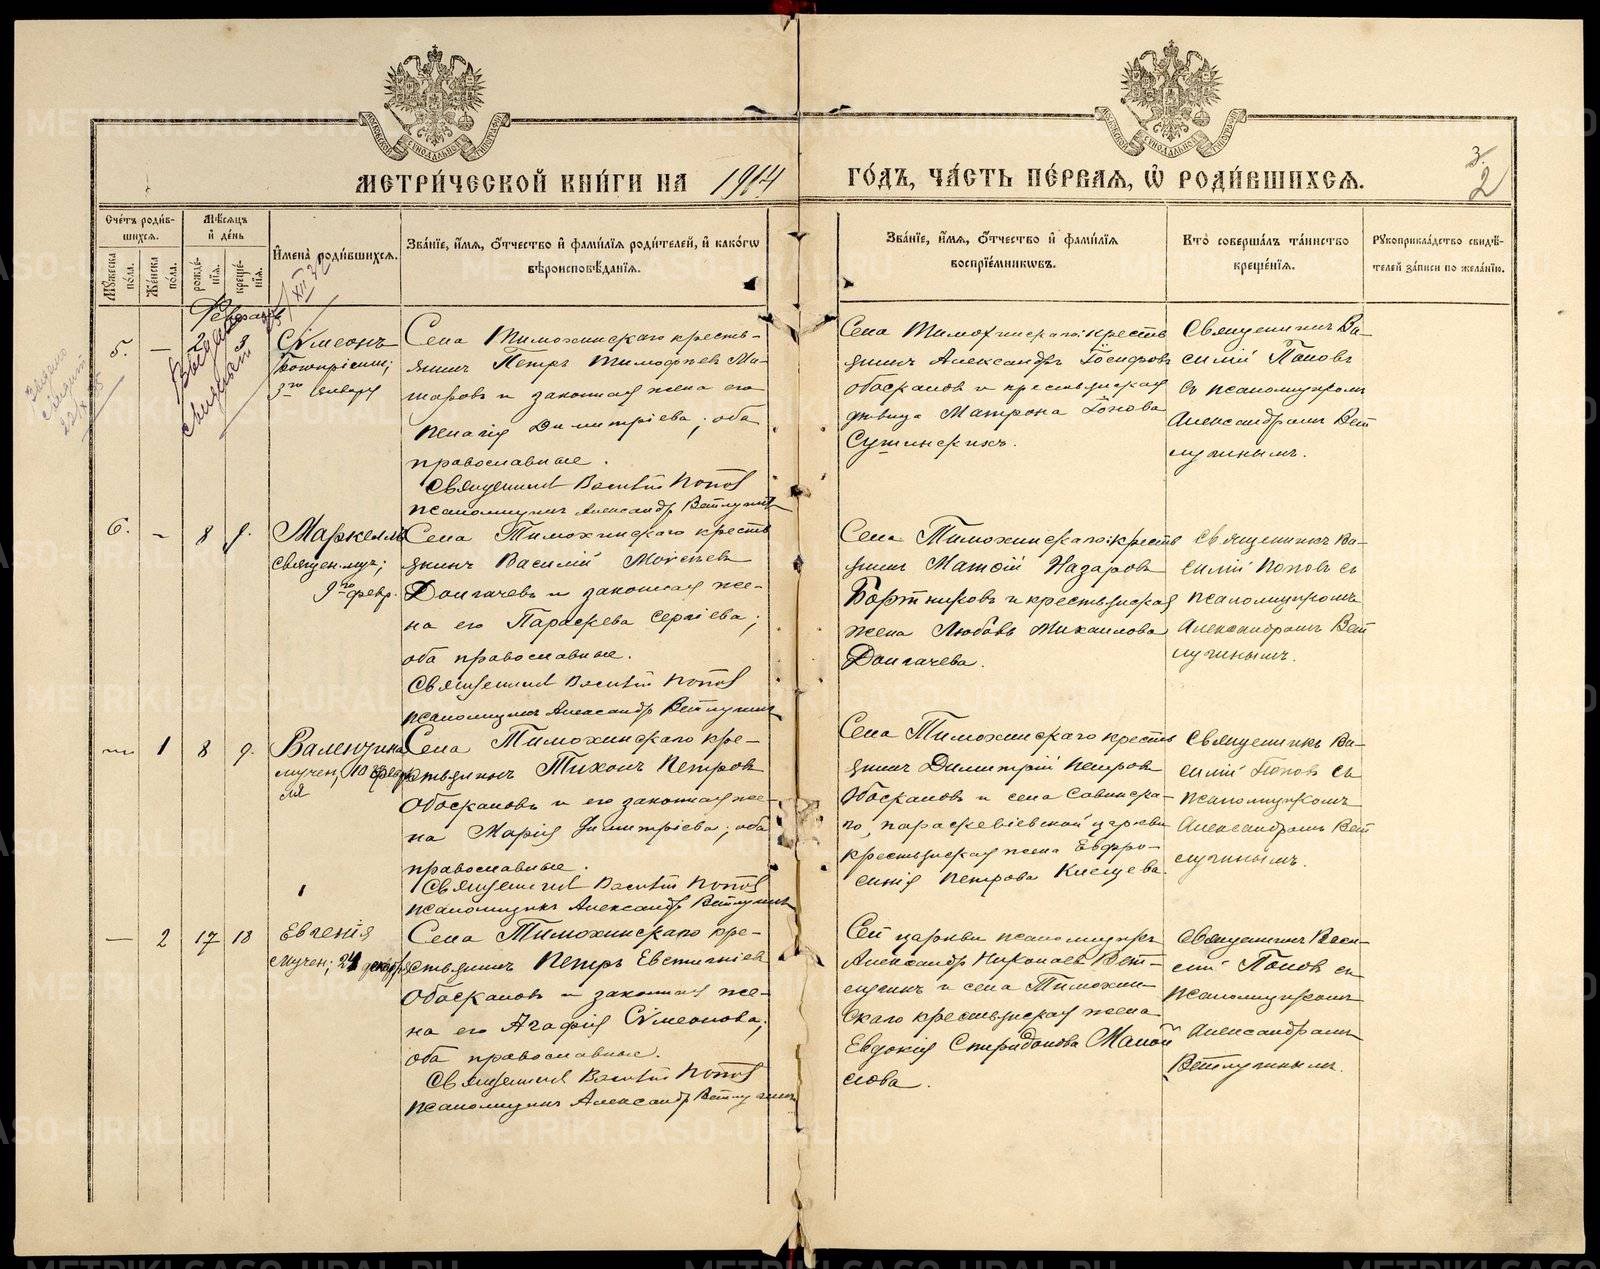 МЕТРИ́ЧЕСКОЙ КНИ́ГИ НА 1914 ГО́ДЪ, ЧА́СТЬ ПЕ́РВАЯ, Ѡ҆ РОДИ́ВШИХСѦ.
3.
2
Сче́тъ роди́в-
шихсѧ.
Мꙋ́жеска по́ла.
Же́нска по́ла.
Мѣ́сѧцъ и҆ де́нь
рожде́-
нїѧ.
креще́-
нїѧ.
И҆мена̀ роди́вшихсѧ.
Зва́нїе, и҆́мѧ, ѻ҆́тчество и҆ фами́лїѧ роди́телей, и҆ како́гѡ
вѣроисповѣ́данїѧ.
Зва́нїе, и҆́мѧ, ѻ҆́тчество и҆ фами́лїѧ
воспрїе́мникѡвъ.
Кто̀ соверша́лъ та́инство
креще́нїѧ.
Рꙋкоприкла́дство свидѣ́-
телей за́писи по жела́нїю.
Февраль
5.
—
2
3
Сѵмеонъ
Богопріим;
3го февр
Села Тимохинскаго кресть-
янинъ Петръ Тимофеевъ Ма-
шаровъ и законная жена его
Пелагія Димитріева; оба
православные.
Священникъ Василій Поповъ
Псаломщикъ Александръ Ветлугинъ
Села Тимохинскаго: кресть
янинъ Александръ Іосифовъ
Обоскаловъ и крестьянская
дѣвица Матрона Іонова
Сушинскихъ.
Священникъ Ва-
силій Поповъ
съ псаломщикомъ
Александромъ Вет
лугинымъ.
6.
—
8
9.
Маркеллъ
священ. муч;
9го февр.
Села Тимохинскаго кресть
янинъ Василій Моисеевъ
Долгачевъ и законная же-
на его Параскева Сергіева;
оба православные.
Священникъ Василій Поповъ
псаломщикъ Александръ Ветлугинъ
Села Тимохинскаго: кресть
янинъ Матѳій Назаровъ
Бортниковъ и крестьянская
жена Любовь Михаилова
Долгачева.
Священникъ Ва-
силій Поповъ съ
псаломщикомъ
Александромъ Вет
лугинымъ.
—
1
8
9.
Валентина
мучен; 10 февра
ля
Села Тимохинскаго кре-
стьянинъ Тихонъ Петровъ
Обоскаловъ и его законная же-
на Марія Димитріева; оба
православные.
Священникъ Василій Поповъ
псаломщикъ Александръ Ветлугинъ
Села Тимохинскаго кресть
янинъ Димитрій Петровъ
Обоскаловъ и села Савинска-
го, параскевіевской церкви
крестьянская жена Евфро-
синія Петрова Клещева.
Священникъ Ва-
силій Поповъ съ
псаломщикомъ
Александромъ Вет
лугинымъ.
—
2
17
18
Евгенія
мучен; 24 декабря
Села Тимохинскаго кре-
стьянинъ Петръ Евстигніевъ
Обоскаловъ и законная же-
на его Агафія Сѵмеонова;
оба православные.
Священникъ Василій Поповъ
псаломщикъ Александръ Ветлугинъ
Сей церкви псаломщикъ
Александръ Николаевъ Вет-
лугинъ и села Тимохин-
скаго крестьянская жена
Евдокія Спиридонова Мамой
лова.
Священникъ Васи-
лій Поповъ съ
псаломщикомъ
Александромъ
Ветлугинымъ.
METRIKI.GASO-URAL.RU